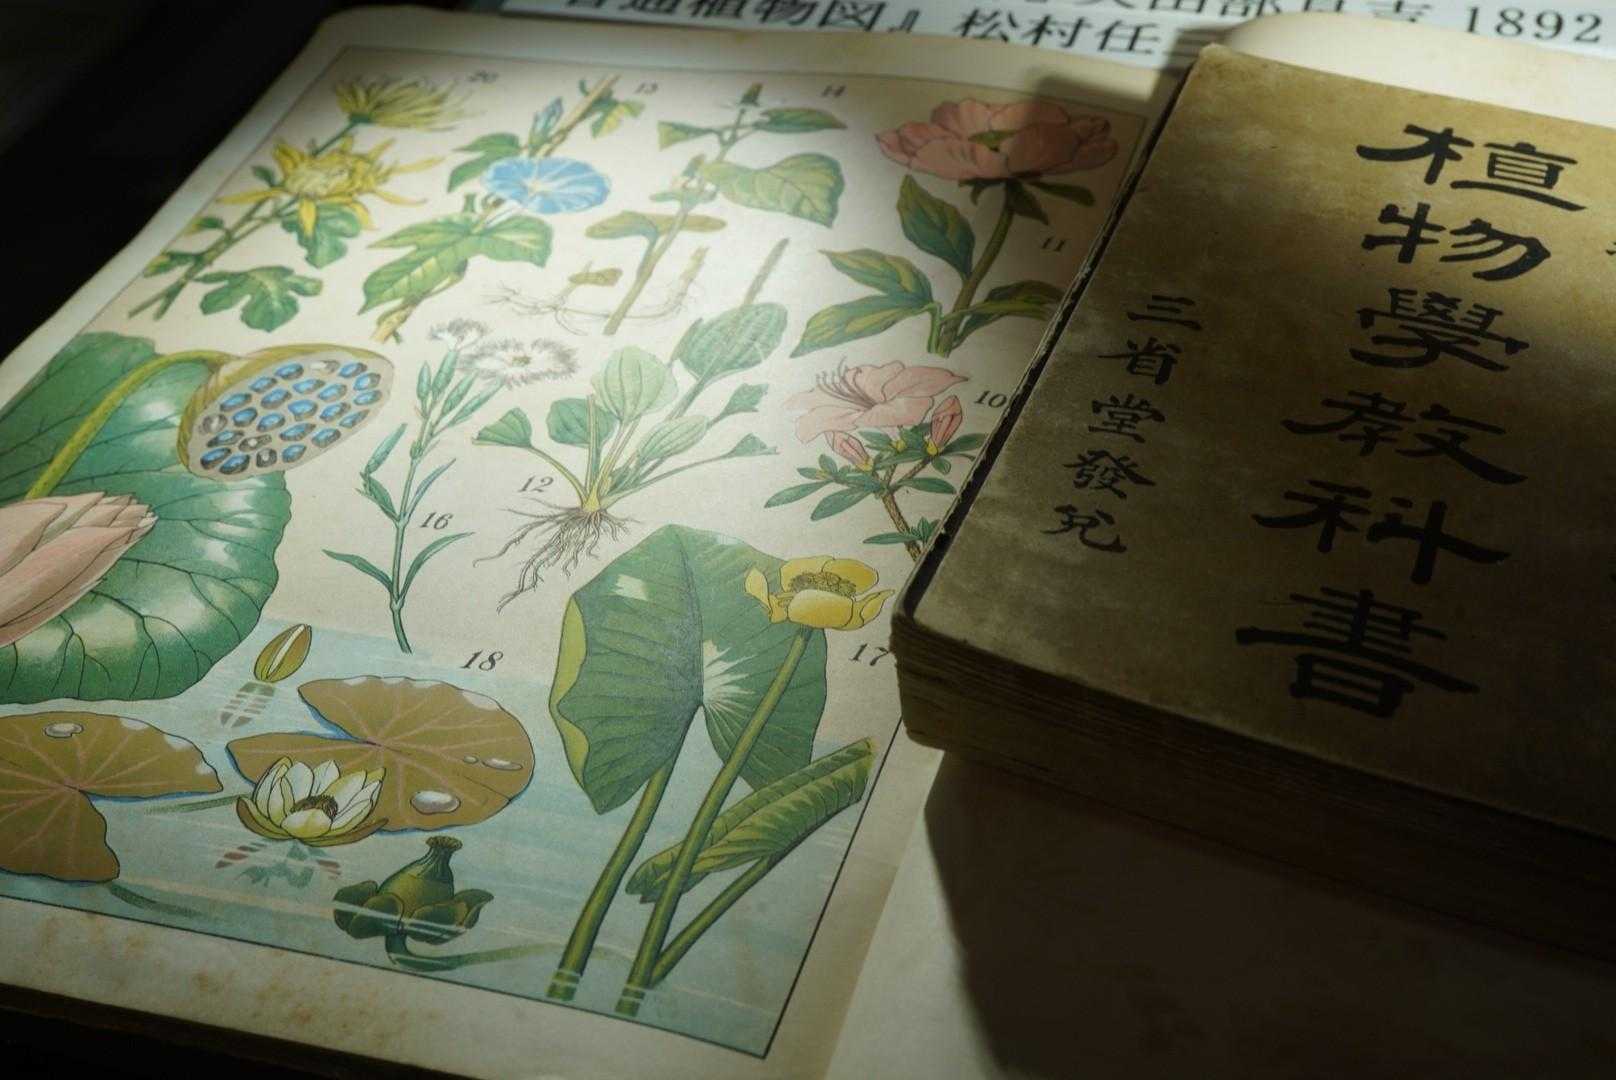 普通植物図』松村任三
1892
20
13
14
11
10
12
16
18
17
植物學教科書
三省堂發兌